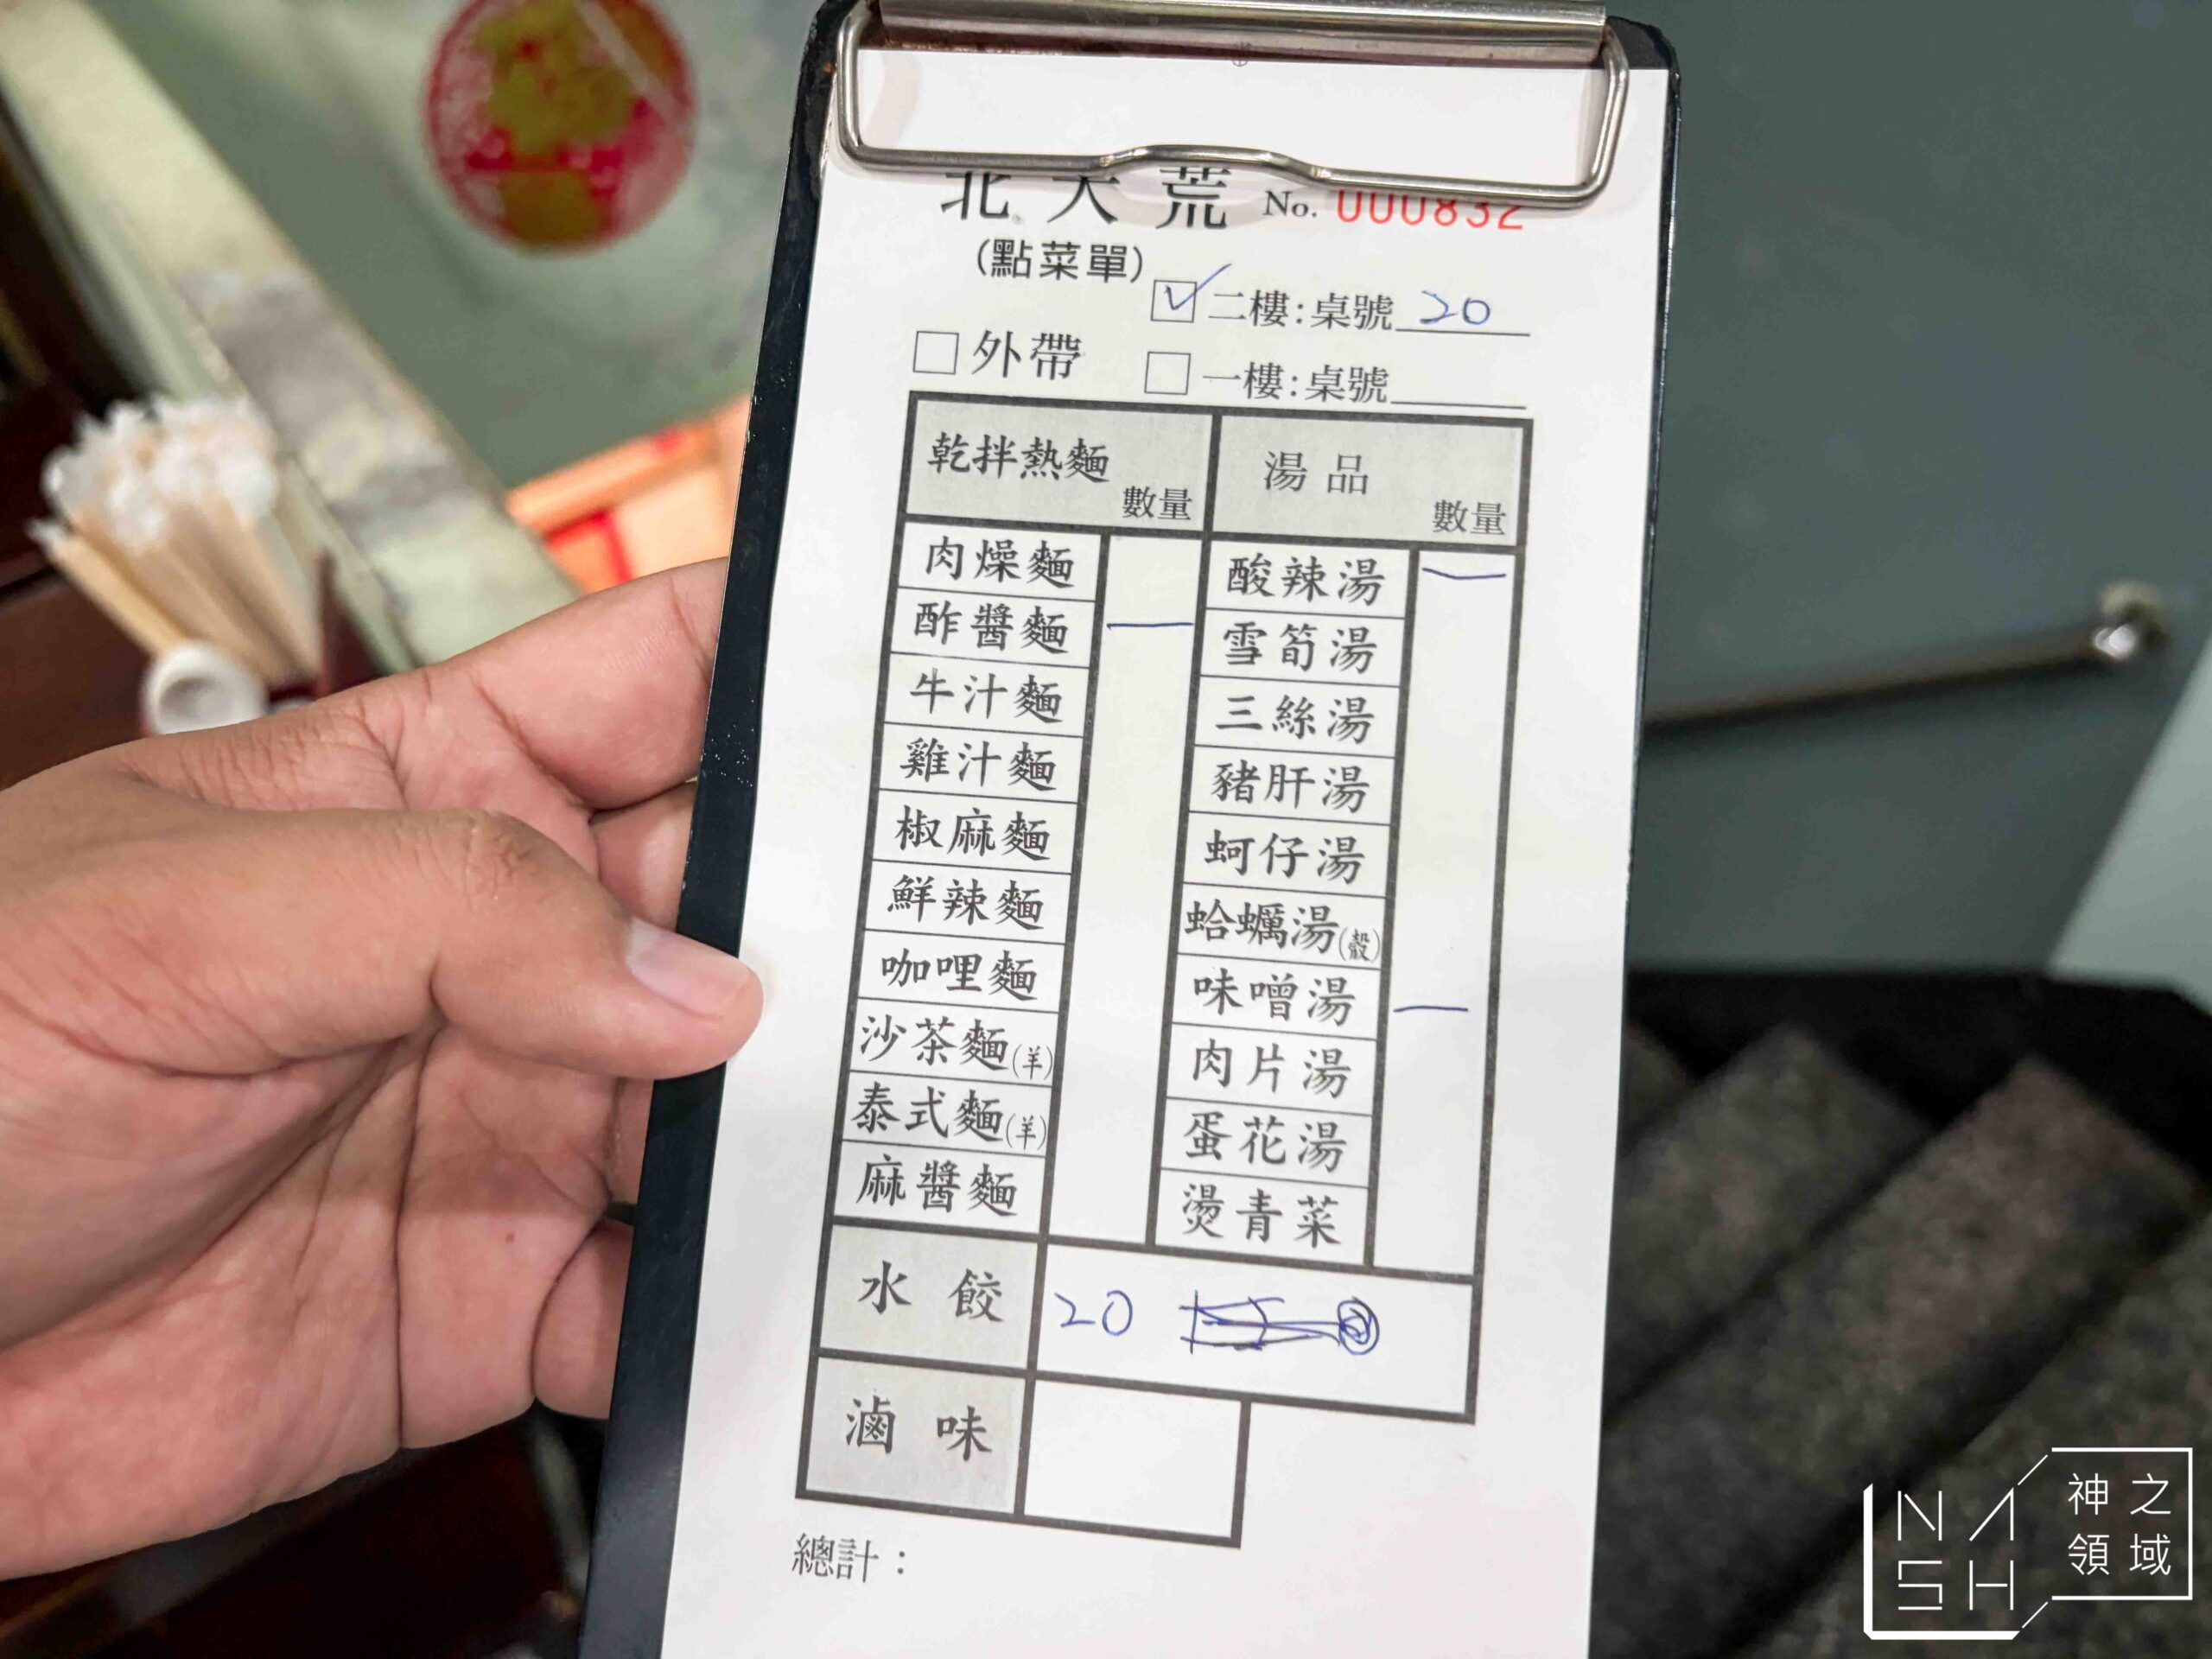 北大荒 No. 000832
(點菜單)
二樓:桌號 20
外帶 一樓:桌號
乾拌熱麵 數量 湯品 數量
肉燥麵 酸辣湯 一
酢醬麵 一 雪筍湯
牛汁麵 三絲湯
雞汁麵 豬肝湯
椒麻麵 蚵仔湯
鮮辣麵 蛤蠣湯(穀)
咖哩麵 味噌湯 一
沙茶麵(羊) 肉片湯
泰式麵(羊) 蛋花湯
麻醬麵 燙青菜
水餃 20
滷味
總計：
NASH 神之領域